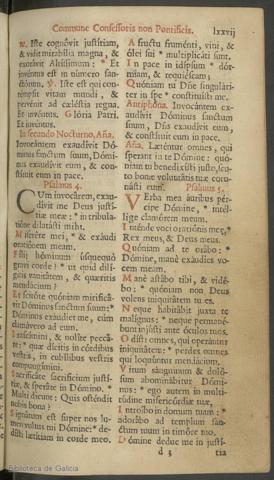 Commune Confessoris non Pontificis. lxxvij
℟. Iste cognóvit justítiam,
& vidit mirabília magna, &
exorávit Altíssimum: * Et
invéntus est in número san-
ctórum. ℣. Iste est qui con-
témpsit vitam mundi, &
pervénit ad cæléstia regna.
Et invéntus. Glória Patri.
Et invéntus.
In secundo Nocturno, Aña.
Invocántem exaudívit Dó-
minus sanctum suum, Dómi-
nus exaudívit eum, & con-
stítuit eum in pace.
Psalmus 4.
CUm invocárem, exau-
dívit me Deus justí-
tiæ meæ: * in tribula-
tióne dilatásti mihi.
Miserére mei, * & exáudi
oratiónem meam.
Fílii hóminum úsquequò
gravi corde? * ut quid dilí-
gitis vanitátem, & quǽritis
mendácium?
Et scitóte quóniam mirificá-
vit Dóminus sanctum suum: *
Dóminus exáudiet me, cùm
clamávero ad eum.
Irascímini, & nolíte peccá-
re: * quæ dícitis in córdibus
vestris, in cubílibus vestris
compungímini.
Sacrificáte sacrifícium justí-
tiæ, & speráte in Dómino. *
Multi dicunt: Quis osténdit
nobis bona?
Signátum est super nos lu-
men vultus tui Dómine: * de-
dísti lætítiam in corde meo.
A fructu fruménti, vini, &
ólei sui * multiplicáti sunt.
In pace in idípsum * dór-
miam, & requiéscam;
Quóniam tu Dñe singulári-
ter in spe * constituísti me.
Antiphona. Invocántem ex-
áudivit Dóminus sanctum
suum, Dñs exaudívit eum,
& constítuit eum in pace.
Aña. Læténtur omnes, qui
sperant in te Dómine: quó-
niam tu benedixísti justo, scu-
to bonæ voluntátis tuæ coro-
násti eum. Psalmus 5.
VErba mea áuribus pér-
cipe Dómine, * intél-
lige clamórem meum.
Inténde voci oratiónis meæ, *
Rex meus, & Deus meus.
Quóniam ad te orábo: *
Dómine, manè exáudies vo-
cem meam.
Manè astábo tibi, & vidé-
bo: * quóniam non Deus
volens iniquitátem tu es.
Neque habitábit juxta te
malígnus: * neque permané-
bunt injústi ante óculos tuos.
Odísti omnes, qui operántur
iniquitátem: * perdes omnes
qui loquúntur mendácium.
Virum sánguinum & doló-
sum abominábitur Dómi-
nus: * ego autem in multi-
túdine misericórdiæ tuæ,
Introíbo in domum tuam: *
adorábo ad templum san-
ctum tuum in timóre tuo.
Dómine deduc me in justí-
d 3 tia
Biblioteca de Galicia